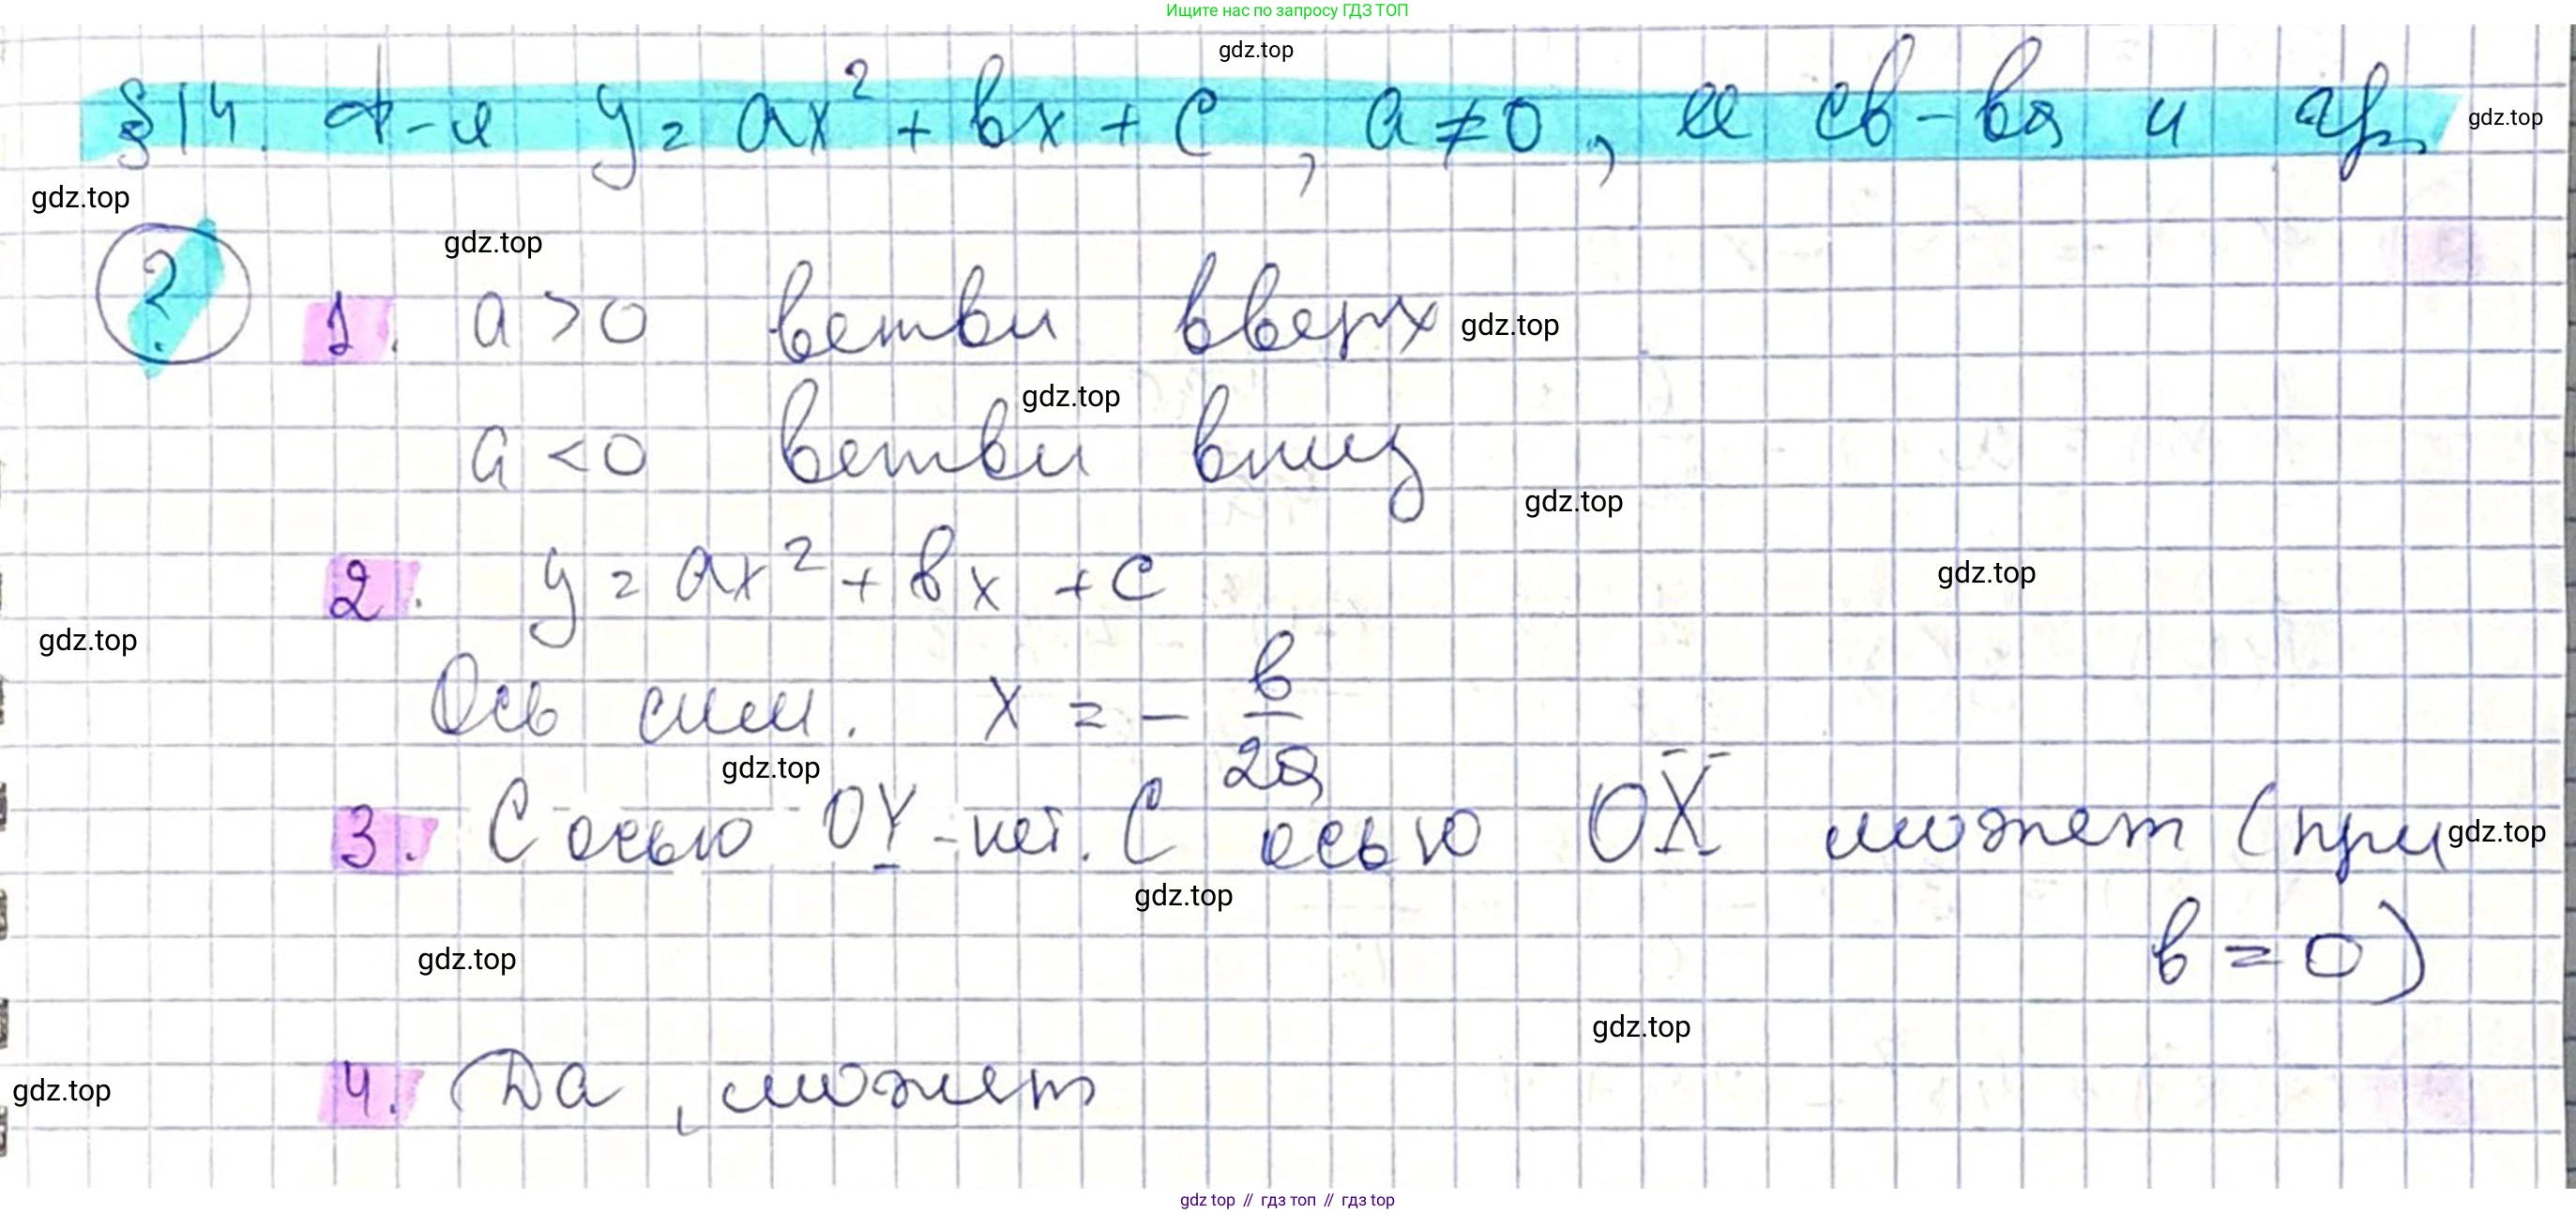 Ищите нас по запросу ГДЗ ТОП
gdz.top
§14. ф-я y = ax² + bx + c, a ≠ 0, ее св-ва и гр. gdz.top
gdz.top
gdz.top
? 1. a > 0 ветви вверх gdz.top
gdz.top
a < 0 ветви вниз
gdz.top
2. y = ax² + bx + c gdz.top
gdz.top
Ось сим. x = - b/2a
gdz.top
3. С осью OY - нет. С осью OX может (при gdz.top
gdz.top
b = 0)
gdz.top
gdz.top
gdz.top 4. Да, может
gdz top // гдз топ // гдз top